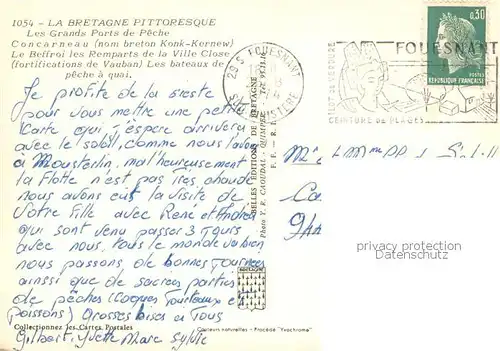 1054 - LA BRETAGNE PITTORESQUE
Les Grands Ports de Pêche
Concarneau (nom breton Konk-Kernew)
Le Beffroi les Remparts de la Ville Close
(fortifications de Vauban) Les bateaux de
pêche à quai.
Je profite de la sieste
pour vous mettre une petite
carte qui j'espère arrivera
avec le soleil, comme nous l'avons
a Mousterlin. malheureusement
la flotte n'est pas très chaude
nous avons eut la visite de
Votre fille avec René et André
qui sont venu passer 3 jours
avec nous, tous le monde va bien
nous passons de bonnes journées
ainsi que de sacrées parties
de pêches (coques Tourteaux et
Poissons) Grosses bises à Tous
Gilbert Yvette Marc Sylvie
Collectionnez les Cartes Postales
BELLES ÉDITIONS DE BRETAGNE
Photo Y. R. CAOUDAL - QUIMPER
Couleurs naturelles - Procédé "Yvochrome"
BRETAGNE
29 S FOUESNANT
S. FINISTERE
FOUESNANT
FORET DE VERDURE
CEINTURE DE PLAGES
0,30
REPUBLIQUE FRANÇAISE
privacy protection
Datenschutz